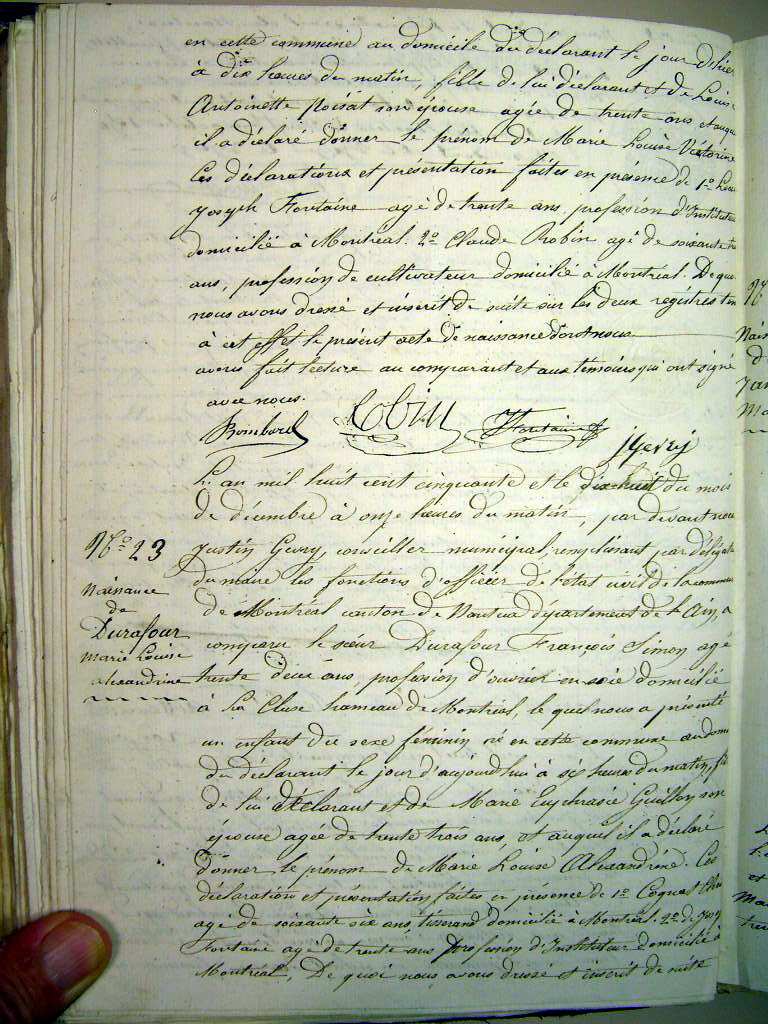 en cette commune au domicile du déclarant le jour d'hier
à dix heures du matin, fille de lui déclarant et de Louise
Antoinette Poisat son épouse agée de trente ans et auquel
il a déclaré donner le prénom de Marie Louise Victorine
Ces déclarations et présentation faites en présence de 1o
Joseph Fontaine agé de trente ans, profession d'Instituteur
domicilié à Montréal. 2o Claude Robin agé de soixante
ans, profession de cultivateur domicilié à Montréal. De quoi
nous avons dressé et inscrit de suite sur les deux registres
à cet effet le présent acte de naissance dont nous
avons fait lecture au comparant et aux témoins qui ont signé
avec nous.
Robin Fontaine
JGevry
L'an mil huit cent cinquante et le dix-huit du mois
de décembre à onze heures du matin, par devant nous
No 23
Justin Gevry, conseiller municipal, remplissant par
du maire les fonctions d'officier de l'état civil de la commune
de Montréal canton de Nantua département de l'Ain, a
comparu le sieur Durafour François Simon agé
trente deux ans, profession d'ouvrier en soie domicilié
Naissance
de
Durafour
Marie Louise
alexandrine
à La Cluse hameau de Montréal, le quel nous a présenté
un enfant du sexe féminin né en cette commune au
du déclarant le jour d'aujourd'hui à six heures du matin,
de lui Déclarant et de Marie Euphrasie Guillon son
épouse agée de trente trois ans, et auquel il a déclaré
donner le prénom de Marie Louise Alexandrine. Ces
déclaration et présentation faites en présence de 1o
agé de soixante six ans, tisserand domicilié à Montréal. 2o de
Fontaine agé de trente ans profession d'Instituteur domicilié à
Montréal, De quoi nous avons dressé et inscrit de suite